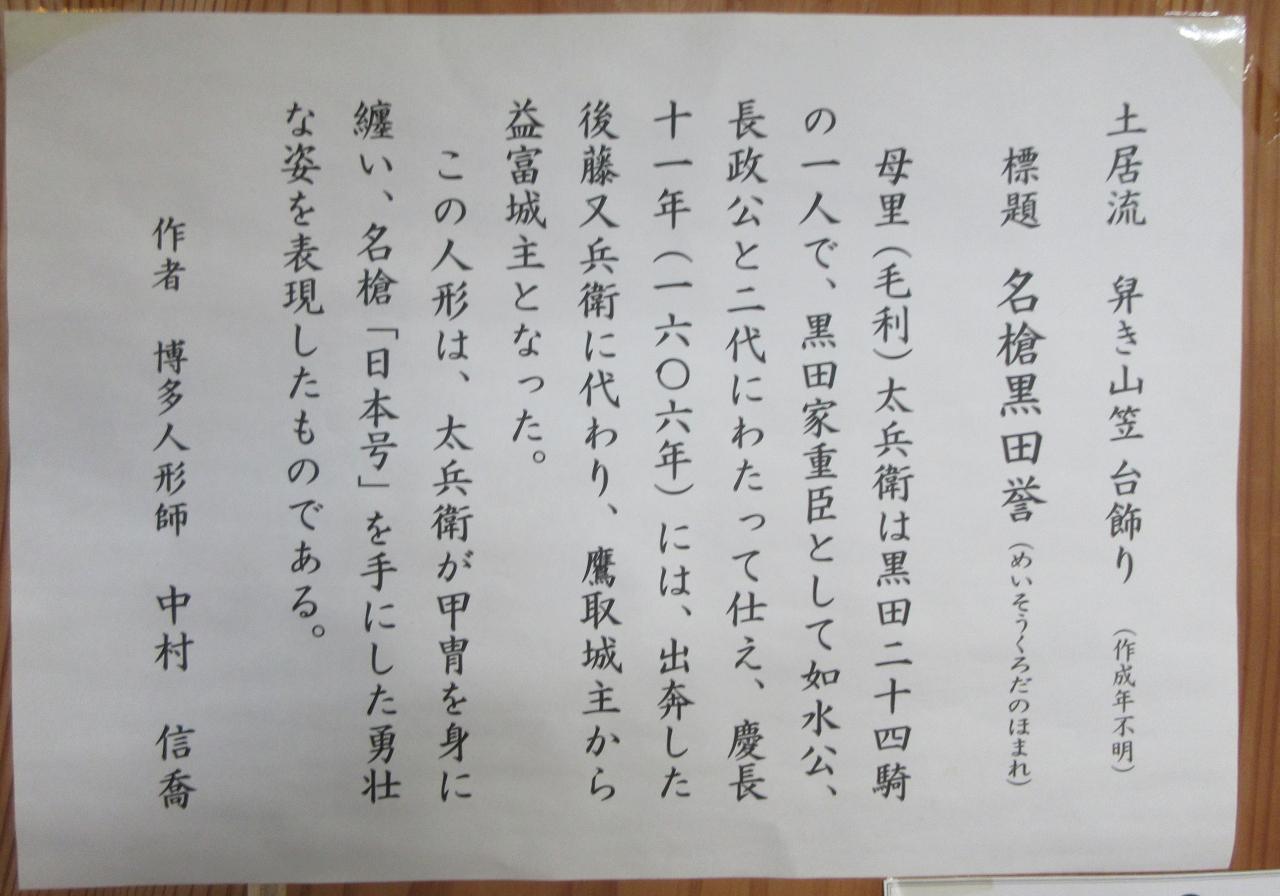 土居流　舁き山笠 台飾り　（作成年不明）
標題　名槍黒田誉（めいそうくろだのほまれ）
母里（毛利）太兵衛は黒田二十四騎
の一人で、黒田家重臣として如水公、
長政公と二代にわたって仕え、慶長
十一年（一六〇六年）には、出奔した
後藤又兵衛に代わり、鷹取城主から
益富城主となった。
この人形は、太兵衛が甲冑を身に
纏い、名槍「日本号」を手にした勇壮
な姿を表現したものである。
作者　博多人形師　中村　信喬